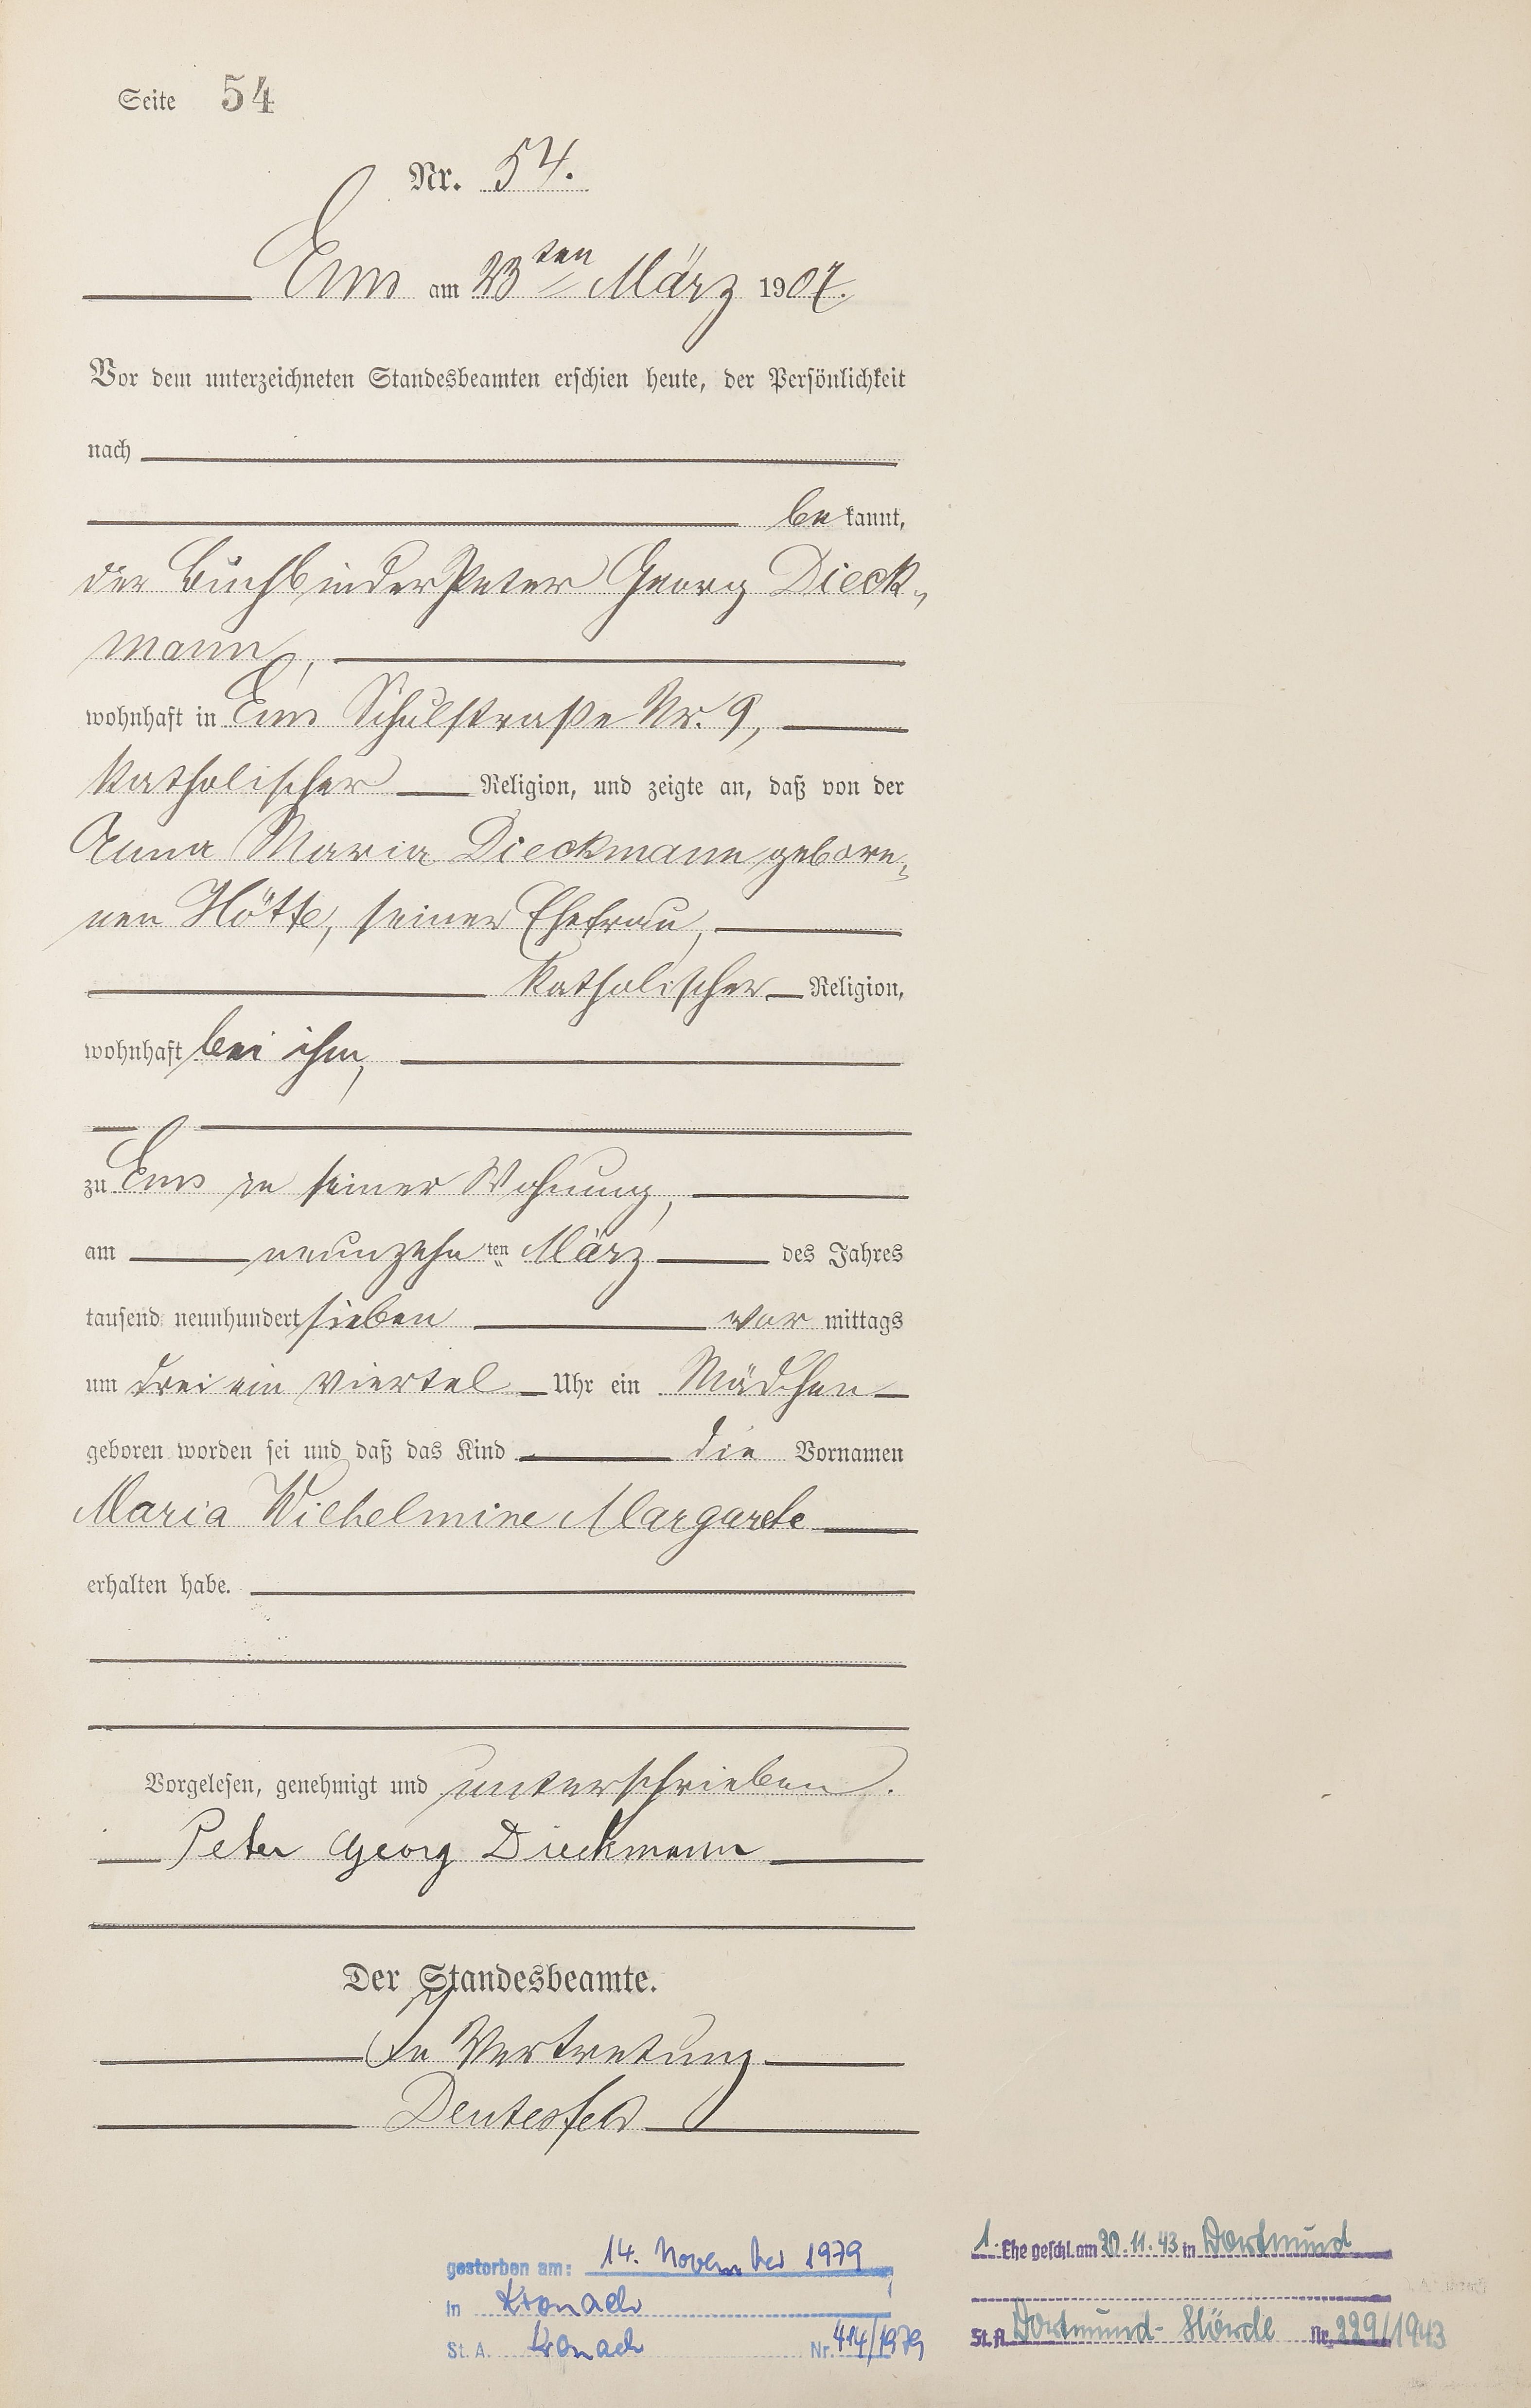 Seite 54
Nr. 54.
Ems am 23ten März 1907.
Vor dem unterzeichneten Standesbeamten erschien heute, der Persönlichkeit
nach
bekannt,
der Buchbinder Peter Georg Dieck-
mann,
wohnhaft in Ems Schulstraße Nr. 9,
katholischer Religion, und zeigte an, daß von der
Anna Maria Dieckmann gebore-
nen Hötte, seiner Ehefrau,
katholischer Religion,
wohnhaft bei ihm,
zu Ems in seiner Wohnung,
am neunzehn ten März des Jahres
tausend neunhundert sieben vor mittags
um drei ein viertel Uhr ein Mädchen
geboren worden sei und daß das Kind die Vornamen
Maria Wilhelmine Margarete
erhalten habe.
Vorgelesen, genehmigt und unterschrieben.
Peter Georg Dieckmann
Der Standesbeamte.
In Vertretung
gestorben am: 14. November 1979
in Kronach
St. A. Kronach Nr. 414/1979
1. Ehe geschl. am 20.11.43 in Dortmund
St.A. Dortmund-Hörde Nr. 229/1943